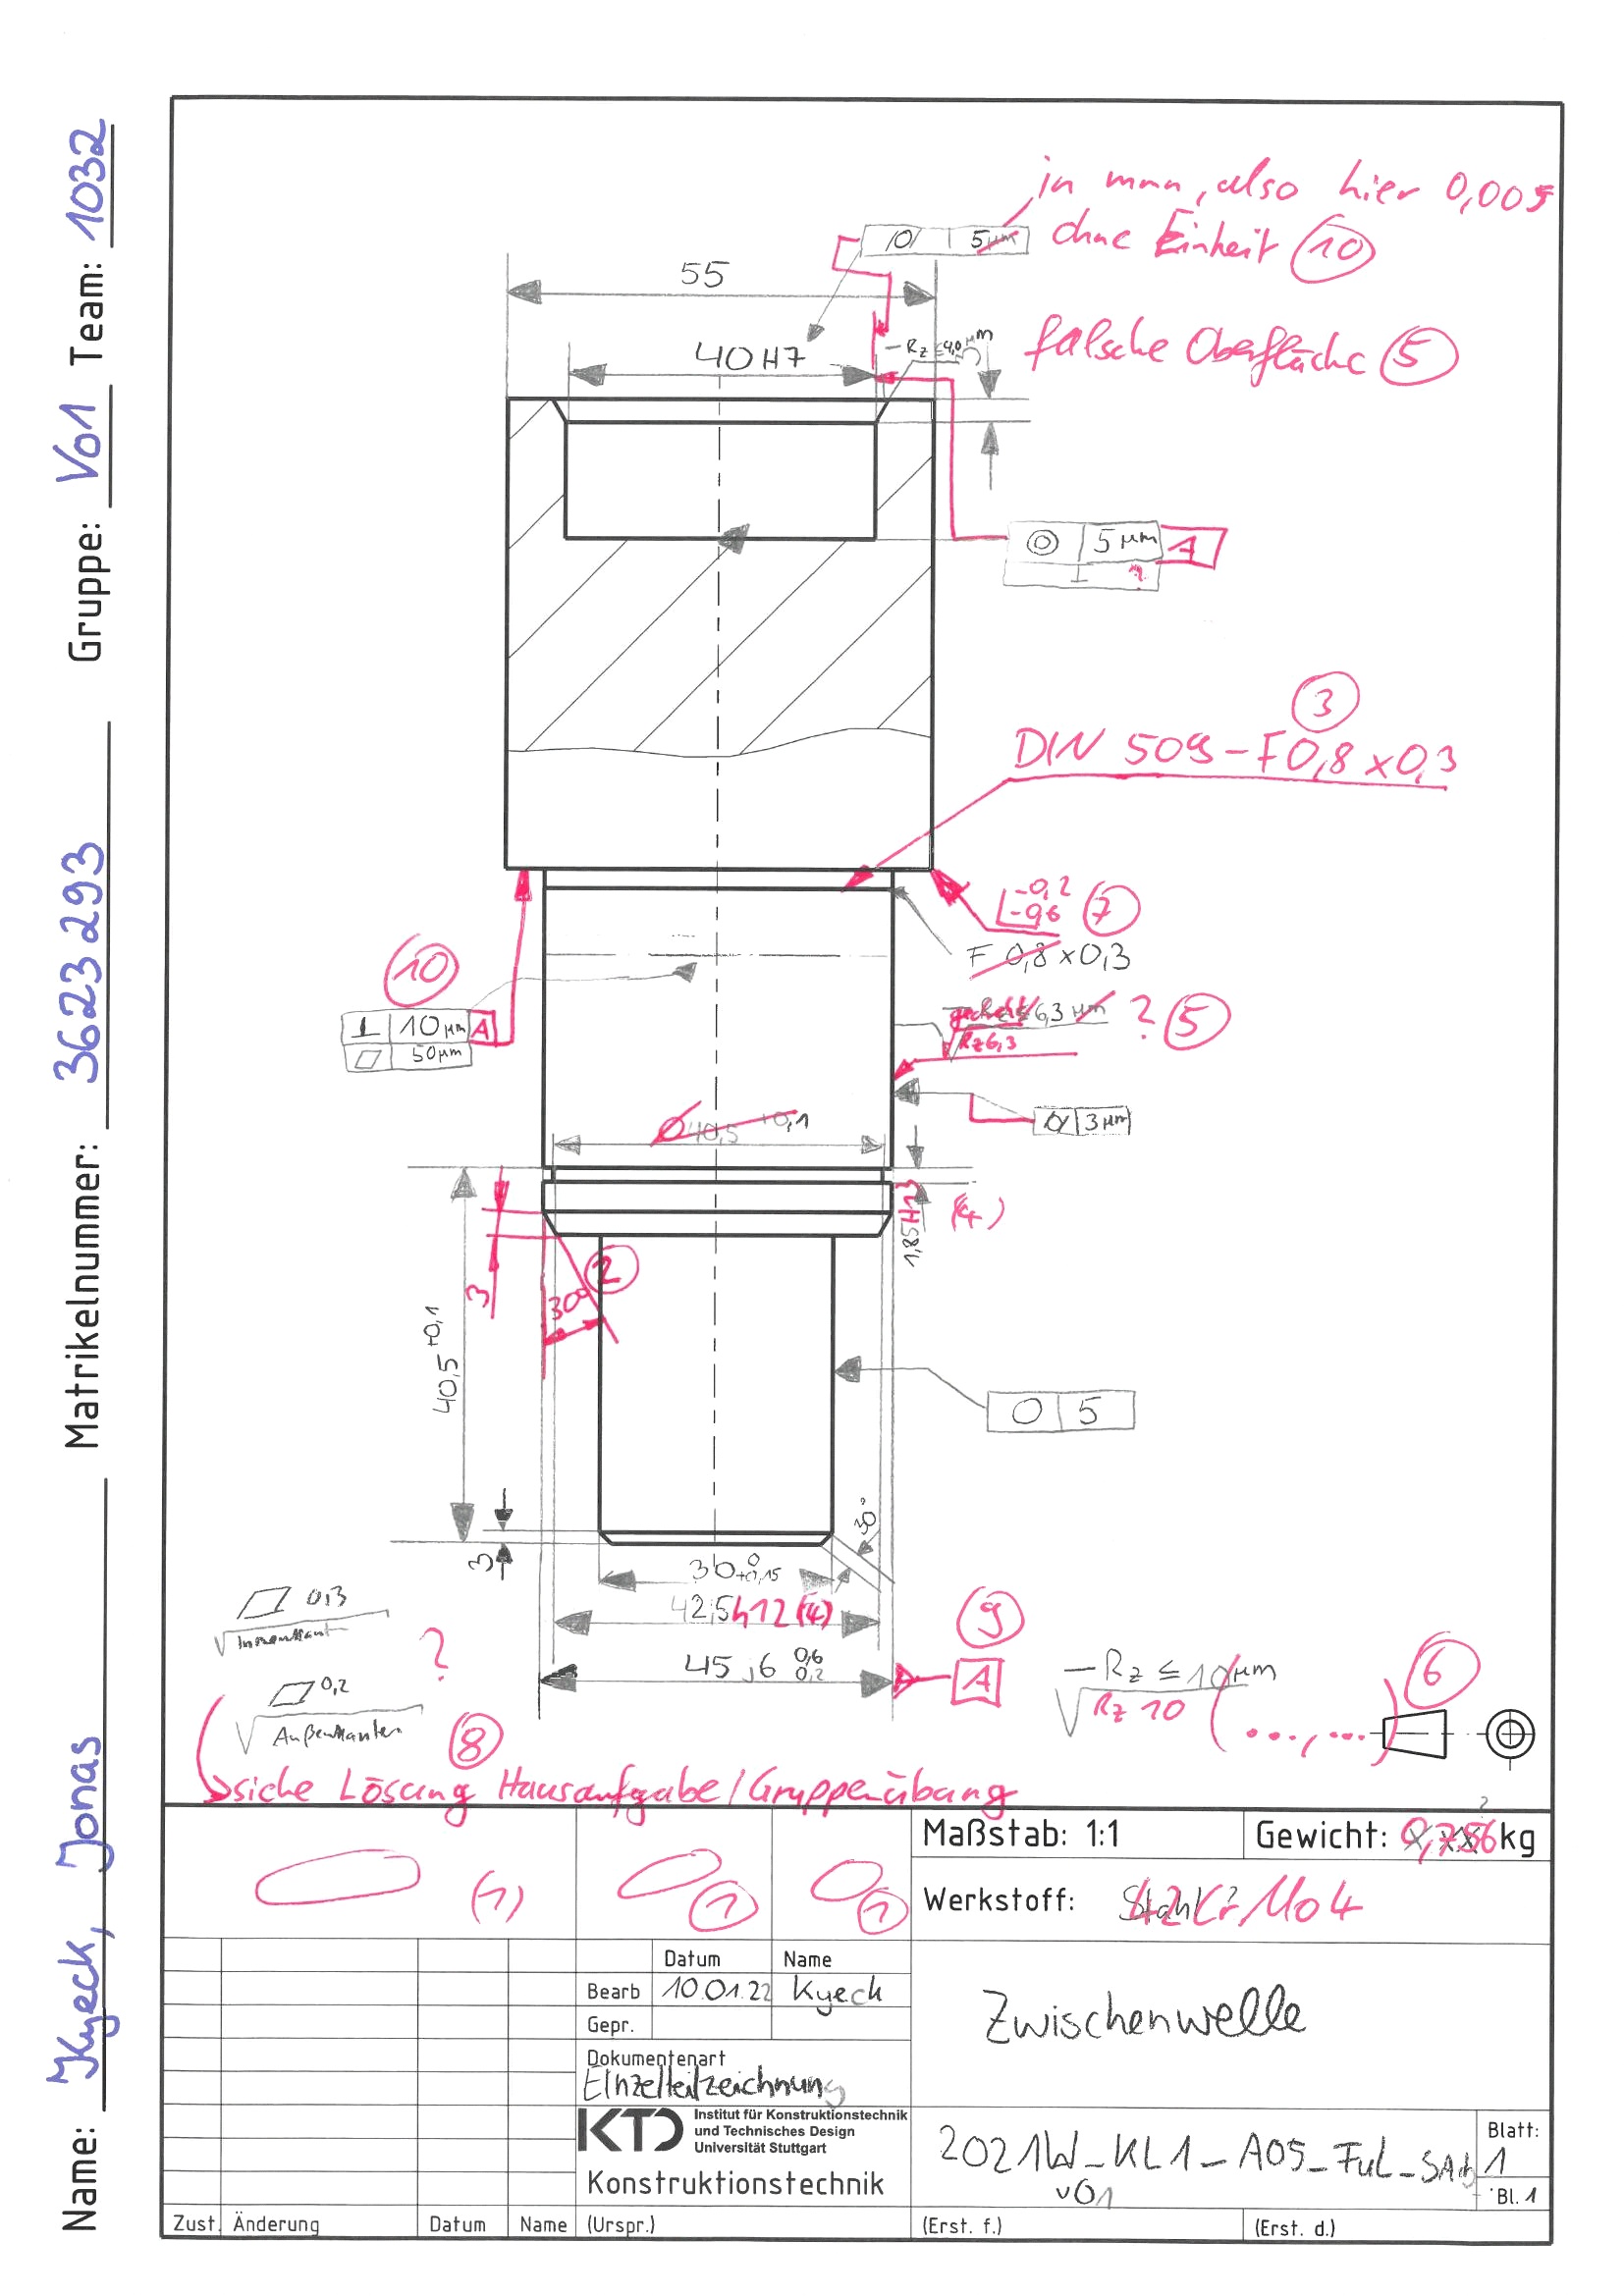 Name: Kyeck, Jonas Matrikelnummer: 3623293 Gruppe: Vo1 Team: 1032
in mm, also hier 0,005
ohne Einheit (10)
5 µm
55
falsche Oberfläche (5)
40 H7
5 µm A
⊥
3
DIN 509 - F 0,8 x 0,3
-0,2
(7)
F 0,8 x 0,3
(10)
⊥ 10 µm A
50 µm
gedreht
6,3 µm ? (5)
Rz 6,3
3 µm
Ø 40,5 +0,1
1,85 H13 (4)
3
30° (2)
40,5 +0,1
5
3
30°
42,5 h12 (4)
45 j6 0,6 0,2
A
(9)
0,3
Innenkant
0,2
Außenkanten
?
(8)
siehe Lösung Hausaufgabe / Gruppenübung
- Rz ≤ 10 µm
Rz 10 (...,...)
(6)
Maßstab: 1:1
Gewicht: 0,756 kg
Werkstoff: 42CrMo4
(1) (1) (1)
Datum Name
Bearb 10.01.22 Kyeck
Gepr.
Zwischenwelle
Dokumentenart
Einzelteilzeichnung
KTD Institut für Konstruktionstechnik
und Technisches Design
Universität Stuttgart
Konstruktionstechnik
2021W_KL1_A05_FuL_SAb
v01
Blatt:
1
Bl. 1
Zust. Änderung Datum Name (Urspr.) (Erst. f.) (Erst. d.)